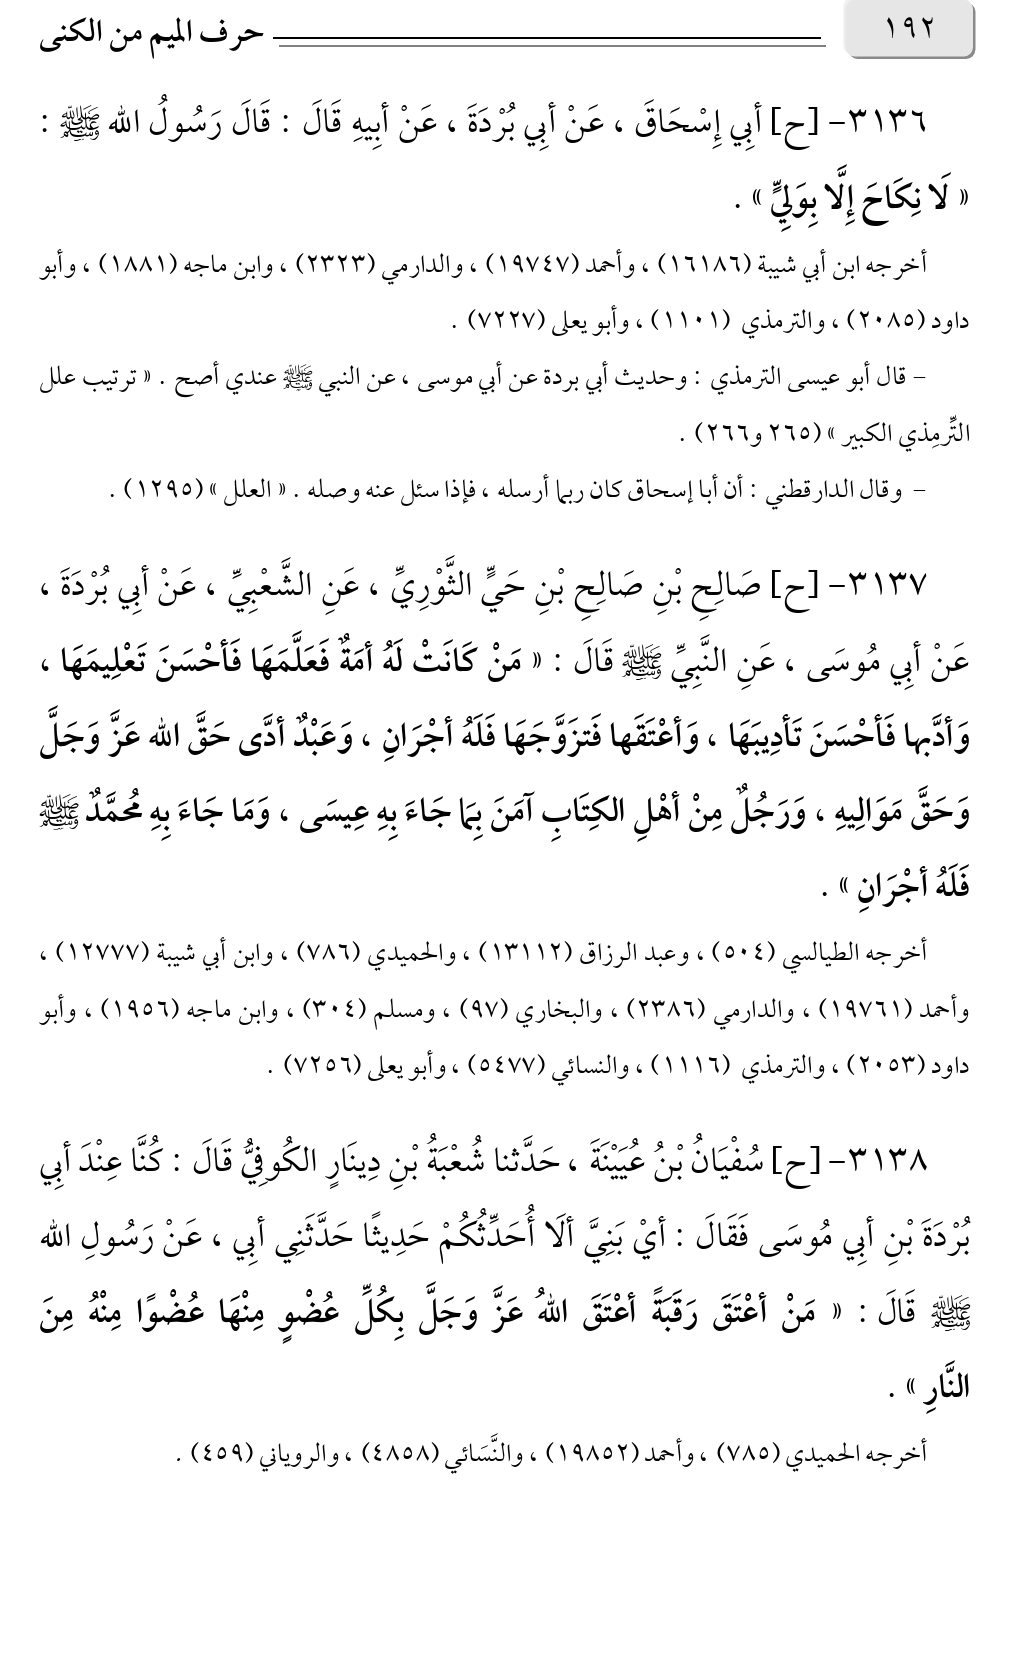 ١٩٢ حرف الميم من الكنى
٣١٣٦- [ح] أبِي إِسْحَاقَ ، عَنْ أبِي بُرْدَةَ ، عَنْ أبِيهِ قَالَ : قَالَ رَسُولُ الله ﷺ :
« لَا نِكَاحَ إِلَّا بِوَلِيٍّ » .
أخرجه ابن أبي شيبة (١٦١٨٦) ، وأحمد (١٩٧٤٧) ، والدارمي (٢٣٢٣) ، وابن ماجه (١٨٨١) ، وأبو
داود (٢٠٨٥) ، والترمذي (١١٠١) ، وأبو يعلى (٧٢٢٧) .
– قال أبو عيسى الترمذي : وحديث أبي بردة عن أبي موسى ، عن النبي ﷺ عندي أصح . « ترتيب علل
التِّرمِذي الكبير » (٢٦٥ و٢٦٦) .
– وقال الدارقطني : أن أبا إسحاق كان ربما أرسله ، فإذا سئل عنه وصله . « العلل » (١٢٩٥) .
٣١٣٧- [ح] صَالِحِ بْنِ صَالِحِ بْنِ حَيٍّ الثَّوْرِيِّ ، عَنِ الشَّعْبِيِّ ، عَنْ أبِي بُرْدَةَ ،
عَنْ أبِي مُوسَى ، عَنِ النَّبِيِّ ﷺ قَالَ : « مَنْ كَانَتْ لَهُ أمَةٌ فَعَلَّمَهَا فَأحْسَنَ تَعْلِيمَهَا ،
وَأدَّبها فَأحْسَنَ تَأدِيبَهَا ، وَأعْتَقَها فَتزَوَّجَهَا فَلَهُ أجْرَانِ ، وَعَبْدٌ أدَّى حَقَّ الله عَزَّ وَجَلَّ
وَحَقَّ مَوَالِيهِ ، وَرَجُلٌ مِنْ أهْلِ الكِتَابِ آمَنَ بِمَا جَاءَ بِهِ عِيسَى ، وَمَا جَاءَ بِهِ مُحمَّدٌ ﷺ
فَلَهُ أجْرَانِ » .
أخرجه الطيالسي (٥٠٤) ، وعبد الرزاق (١٣١١٢) ، والحميدي (٧٨٦) ، وابن أبي شيبة (١٢٧٧٧) ،
وأحمد (١٩٧٦١) ، والدارمي (٢٣٨٦) ، والبخاري (٩٧) ، ومسلم (٣٠٤) ، وابن ماجه (١٩٥٦) ، وأبو
داود (٢٠٥٣) ، والترمذي (١١١٦) ، والنسائي (٥٤٧٧) ، وأبو يعلى (٧٢٥٦) .
٣١٣٨- [ح] سُفْيَانُ بْنُ عُيَيْنَةَ ، حَدَّثنا شُعْبَةُ بْنِ دِينَارٍ الكُوفِيُّ قَالَ : كُنَّا عِنْدَ أبِي
بُرْدَةَ بْنِ أبِي مُوسَى فَقَالَ : أيْ بَنِيَّ ألَا أُحَدِّثُكُمْ حَدِيثًا حَدَّثَنِي أبِي ، عَنْ رَسُولِ الله
ﷺ قَالَ : « مَنْ أعْتَقَ رَقَبَةً أعْتَقَ اللهُ عَزَّ وَجَلَّ بِكُلِّ عُضْوٍ مِنْهَا عُضْوًا مِنْهُ مِنَ
النَّارِ » .
أخرجه الحميدي (٧٨٥) ، وأحمد (١٩٨٥٢) ، والنَّسَائي (٤٨٥٨) ، والروياني (٤٥٩) .